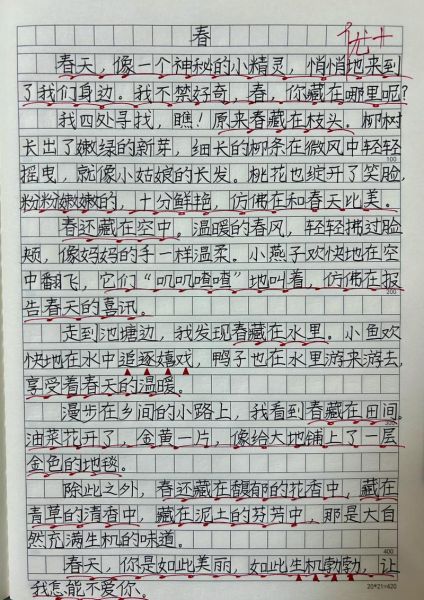 春
优+
春天，像一个神秘的小精灵，悄悄地来到
了我们身边。我不禁好奇，春，你藏在哪里呢?
我四处寻找，瞧！原来春藏在枝头。柳树
长出了嫩绿的新芽，细长的柳条在微风中轻轻
100
摇曳，就像小姑娘的长发。桃花也绽开了笑脸，
粉粉嫩嫩的，十分鲜艳，仿佛在和春天比美。
春还藏在空中。温暖的春风，轻轻拂过脸
颊，像妈妈的手一样温柔。小燕子欢快地在空
中翻飞，它们“叽叽喳喳”地叫着，仿佛在报
200
告春天的喜讯。
走到池塘边，我发现春藏在水里。小鱼欢
快地在水中追逐嬉戏，鸭子也在水里游来游去，
享受着春天的温暖。
漫步在乡间的小路上，我看到春藏在田间。
300
油菜花开了，金黄一片，像给大地铺上了一层
金色的地毯。
除此之外，春还藏在馥郁的花香中，藏在
青草的清香中，藏在泥土的芬芳中，那是大自
然充满生机的味道。
400
春天，你是如此美丽，如此生机勃勃，让
我怎能不爱你。
20*21=420